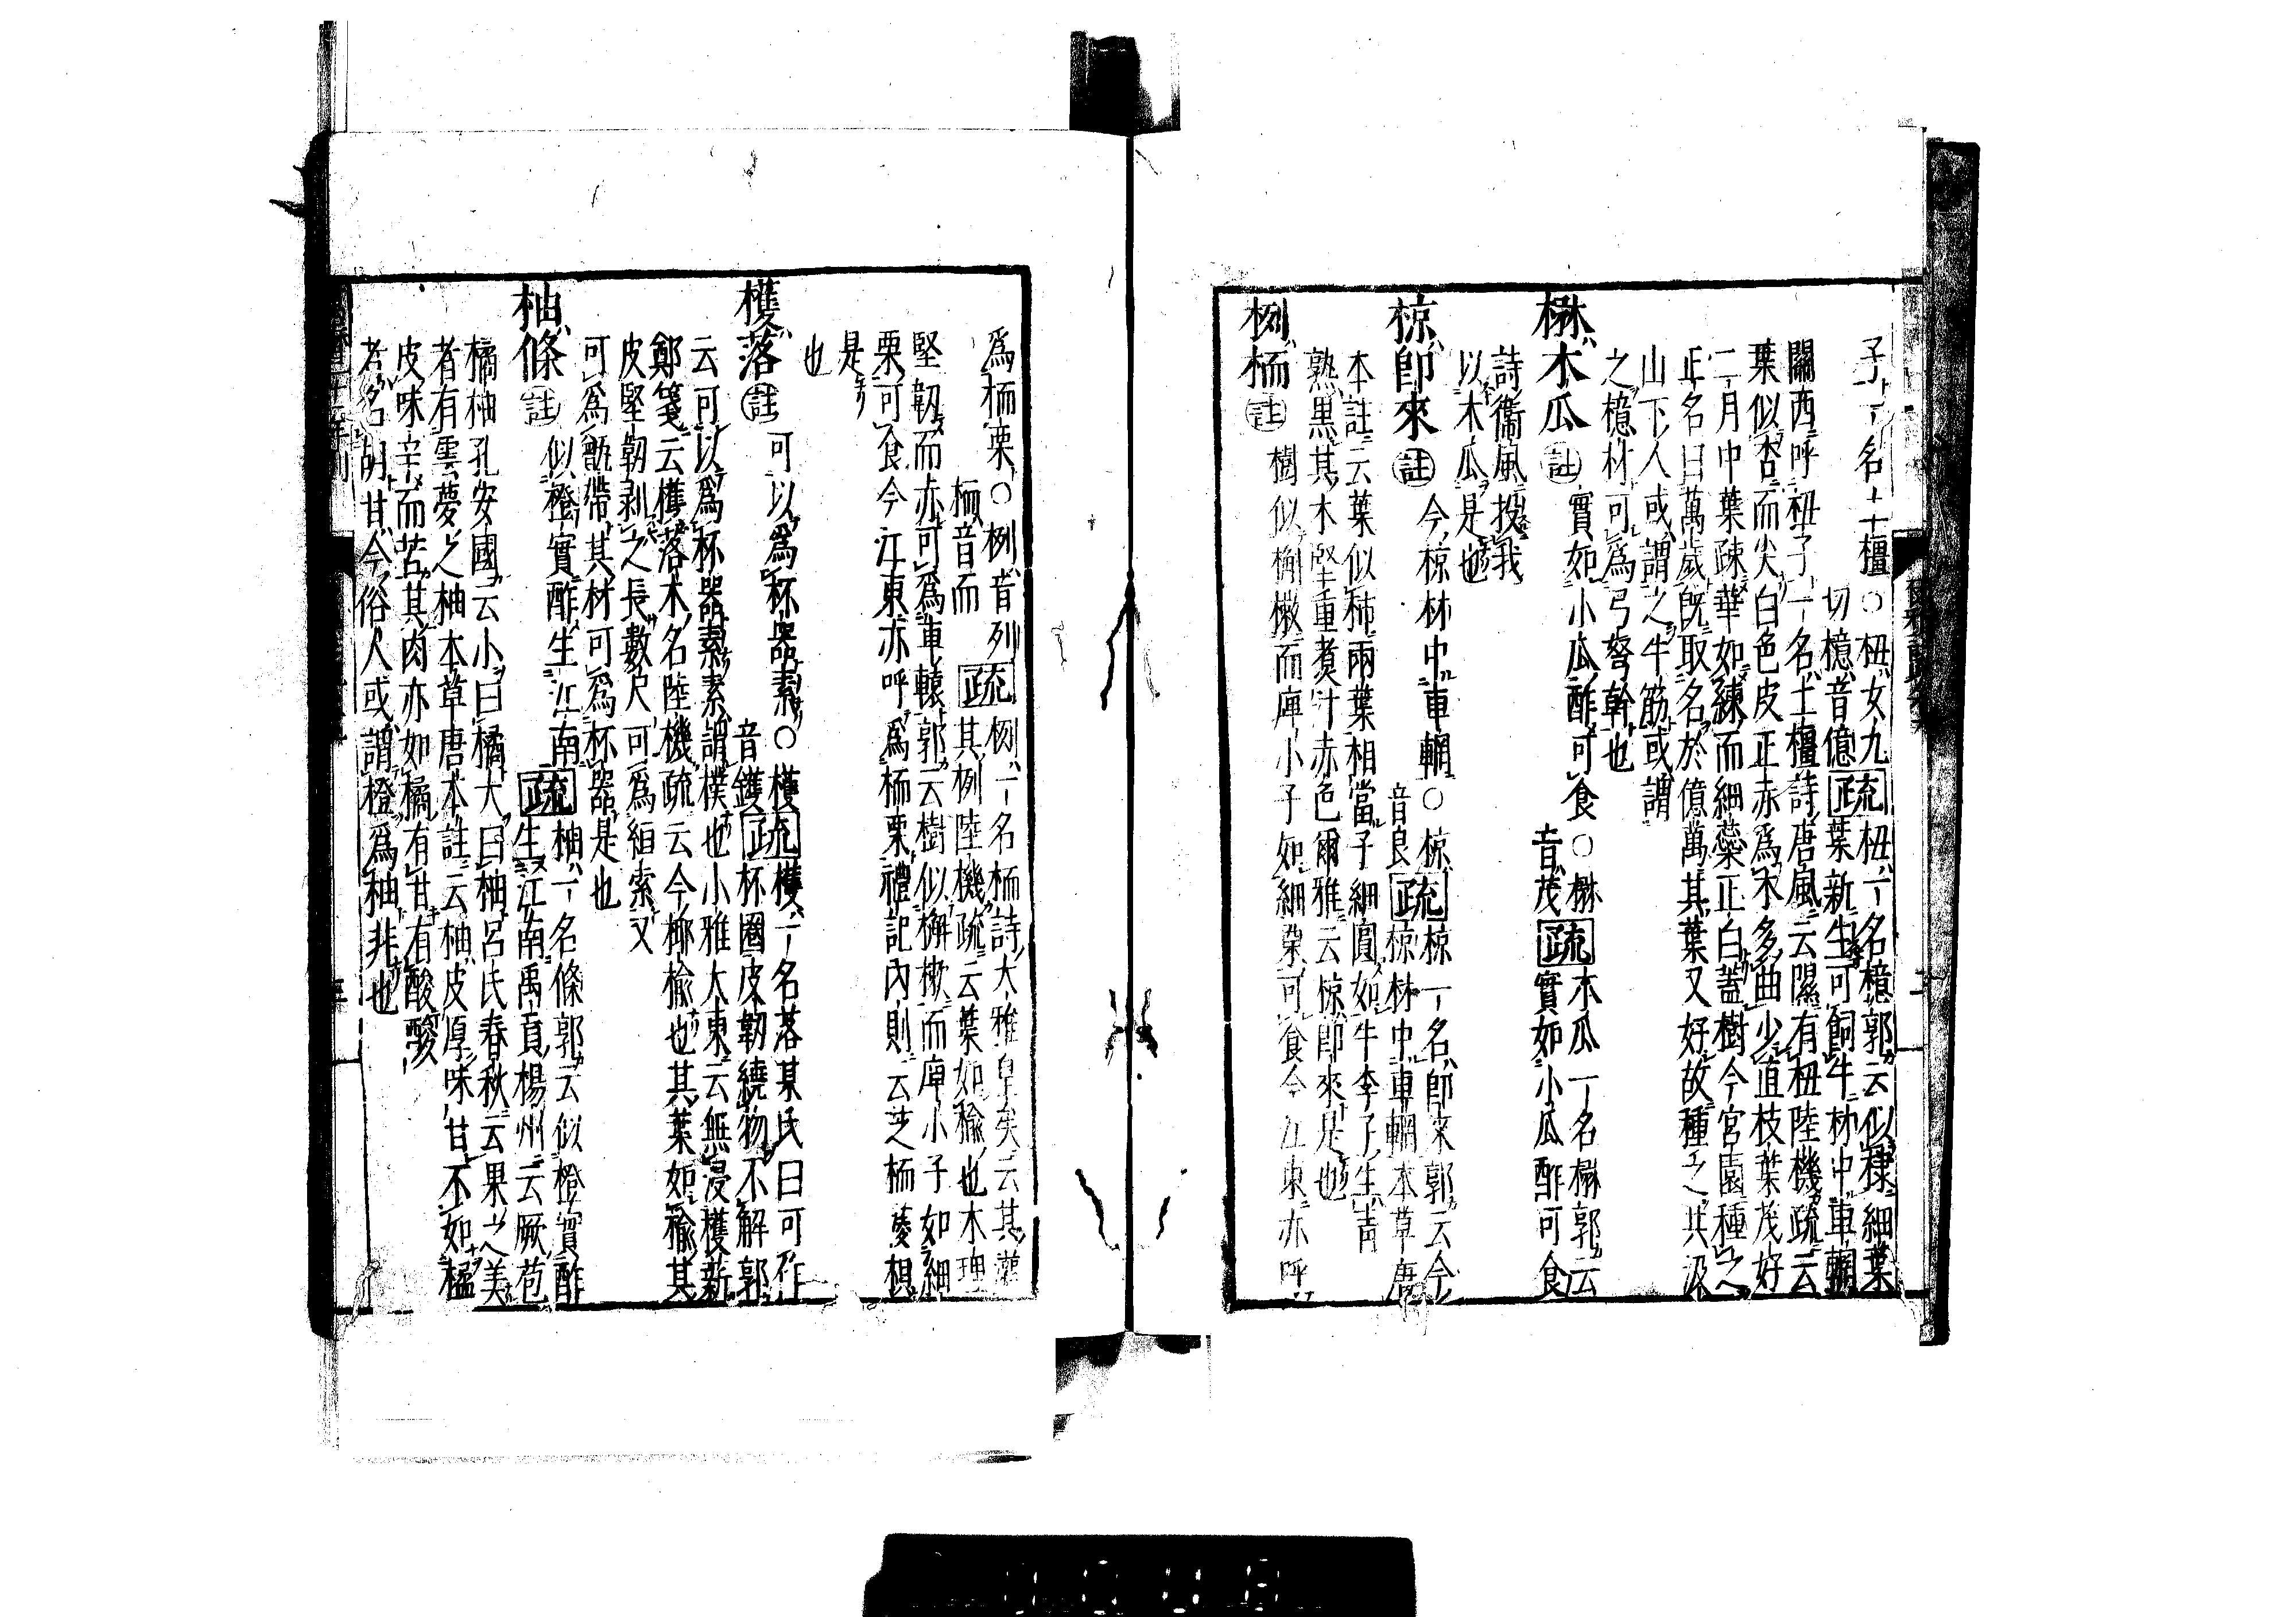 子一名土橿○杻女九
切檍音億疏杻一名檍郭云似棣細葉
葉新生可飼牛材中車輞
關西呼杻子一名土橿詩唐風云隰有杻陸機疏云
葉似杏而尖白色皮正赤爲木多曲少直枝葉茂好
二月中葉疎華如練而細蘂正白蓋樹今宮園種之
正名曰萬歲既取名於億萬其葉又好故種之共汲
山下人或謂之牛筋或謂
之檍材可爲弓弩幹也
楙木瓜註實如小瓜酢可食○楙
音茂疏木瓜一名楙郭云
實如小瓜酢可食
詩衞風投我
以木瓜是也
椋即來註今椋材中車輞○椋
音良疏椋一名即來郭云今
椋材中車輞本草唐
本註云葉似柿兩葉相當子細圓如牛李子生青
熟黒其木堅重煑汁赤色爾雅云椋即來是也
栵栭註樹似槲樕而庳小子如細栗可食今江東亦呼
爲栭栗○栵音列
栭音而疏栵一名栭詩大雅皇矣云其灌
其栵陸機疏云葉如榆也木理
堅韌而赤可爲車轅郭云樹似槲樕而庳小子如細
栗可食今江東亦呼爲栭栗禮記內則云芝栭蔆椇
是
也
檴落註可以爲杯器素○檴
音鑊疏檴一名落某氏曰可作
杯圈皮韌繞物不解郭
云可以爲杯器素素謂樸也小雅大東云無浸檴新
鄭箋云檴落木名陸機疏云今椰榆也其葉如榆其
皮堅韌剥之長數尺可爲絙索又
可爲甑帶其材可爲杯器是也
柚條註似橙實酢生江南疏柚一名條郭云似橙實酢
生江南禹貢楊州云厥苞
橘柚孔安國云小曰橘大曰柚呂氏春秋云果之美
者有雲夢之柚本草唐本註云柚皮厚味甘不如橘
皮味辛而苦其肉亦如橘有甘有酸酸
者名胡甘今俗人或謂橙爲柚非也